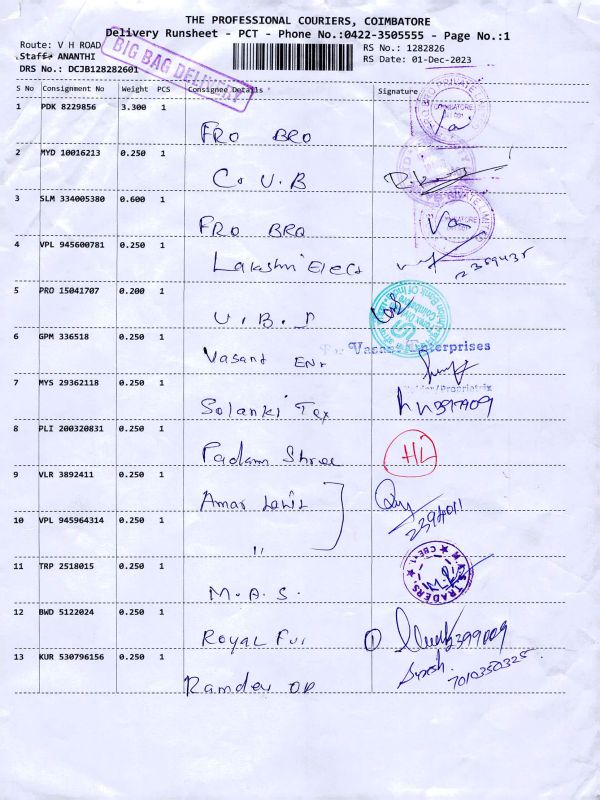 THE PROFESSIONAL COURIERS, COIMBATORE
Delivery Runsheet - PCT - Phone No.:0422-3505555 - Page No.:1
Route: V H ROAD
Staff: ANANTHI
DRS No.: DCJB128282601
RS No.: 1282826
RS Date: 01-Dec-2023
BIG BAG DELIVERY
S No Consignment No Weight PCS Consignee Details Signature
1 PDK 8229856 3.300 1 FRO BRO
2 MYD 10016213 0.250 1 C.U.B
3 SLM 334005380 0.600 1 FRO BRO
4 VPL 945600781 0.250 1 Lakshmi Elect
5 PRO 15041707 0.200 1 U.B.I
6 GPM 336518 0.250 1 Vasant Ent
For Vasant Enterprises
7 MYS 29362118 0.250 1 Solanki Tex
8 PLI 200320831 0.250 1 Padam Shree
9 VLR 3892411 0.250 1 Amar
2394011
10 VPL 945964314 0.250 1 "
11 TRP 2518015 0.250 1 M.A.S. TRADERS
12 BWD 5122024 0.250 1 Royal Fur 1 2399009
13 KUR 530796156 0.250 1 Ramdev Suresh
7010350325